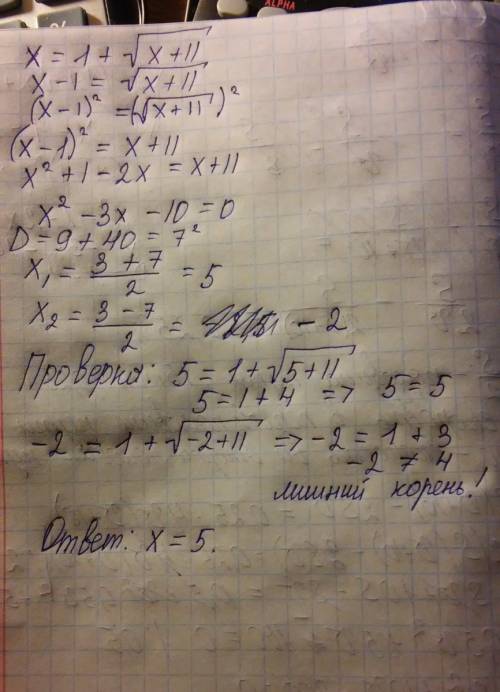 ALPHA
x = 1 + √(x+11)
x - 1 = √(x+11)
(x-1)² = (√(x+11))²
(x-1)² = x+11
x² + 1 - 2x = x+11
x² - 3x - 10 = 0
D = 9 + 40 = 7²
x₁ = (3+7)/2 = 5
x₂ = (3-7)/2 = -2
Проверка: 5 = 1 + √(5+11)
5 = 1 + 4 => 5 = 5
-2 = 1 + √(-2+11) => -2 = 1 + 3
-2 ≠ 4
лишний корень!
Ответ: x = 5.